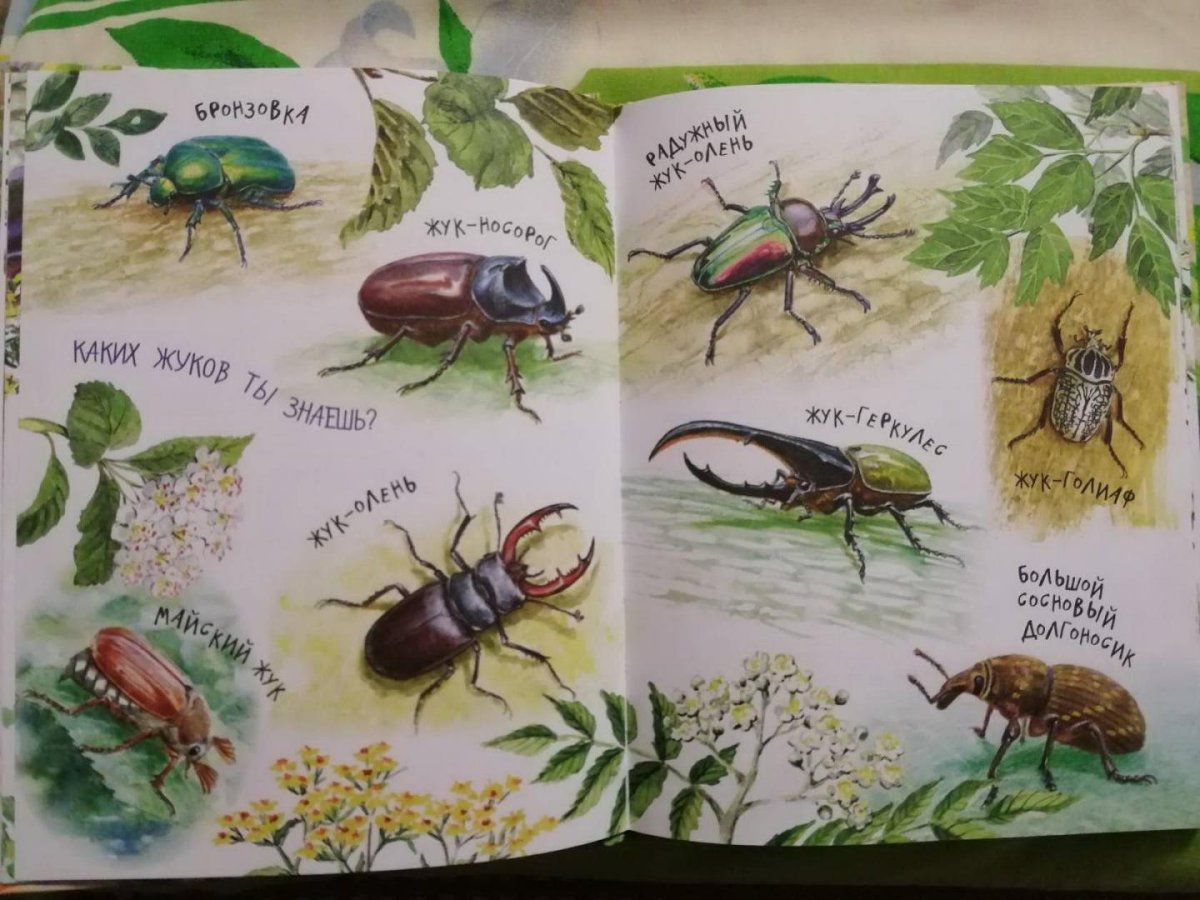 БРОНЗОВКА
ЖУК-НОСОРОГ
КАКИХ ЖУКОВ ТЫ ЗНАЕШЬ?
ЖУК-ОЛЕНЬ
МАЙСКИЙ ЖУК
РАДУЖНЫЙ
ЖУК-ОЛЕНЬ
ЖУК-ГЕРКУЛЕС
ЖУК-ГОЛИАФ
БОЛЬШОЙ
СОСНОВЫЙ
ДОЛГОНОСИК